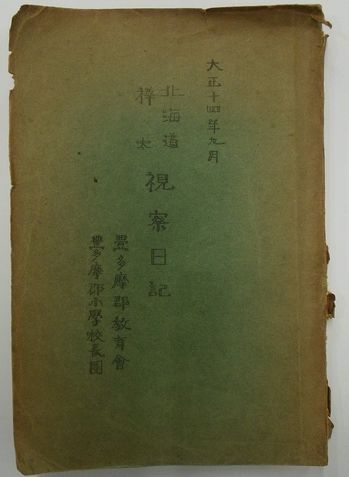 大正十四年九月
北海道
樺太
視察日記
豊多摩郡教育會
豊多摩郡小學校長團